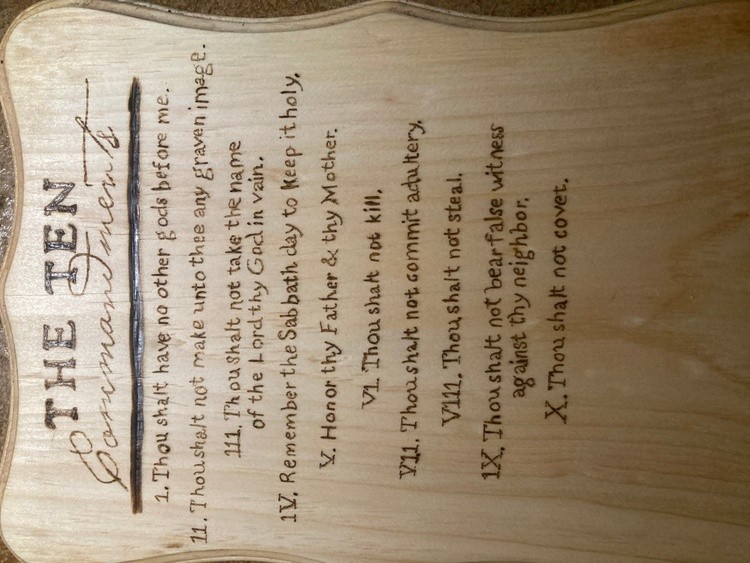 THE TEN
Commandments
1. Thou shalt have no other gods before me.
11. Thou shalt not make unto thee any graven image.
111. Thou shalt not take the name
of the Lord thy God in vain.
1V. Remember the Sabbath day to keep it holy.
V. Honor thy Father & thy Mother.
V1. Thou shalt not kill.
V11. Thou shalt not commit adultery.
V111. Thou shalt not steal.
1X. Thou shalt not bear false witness
against thy neighbor.
X. Thou shalt not covet.